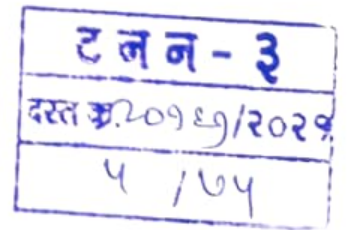 ट न न - ३
दस्त क्र.२०१६७/२०२१
५ / ७५